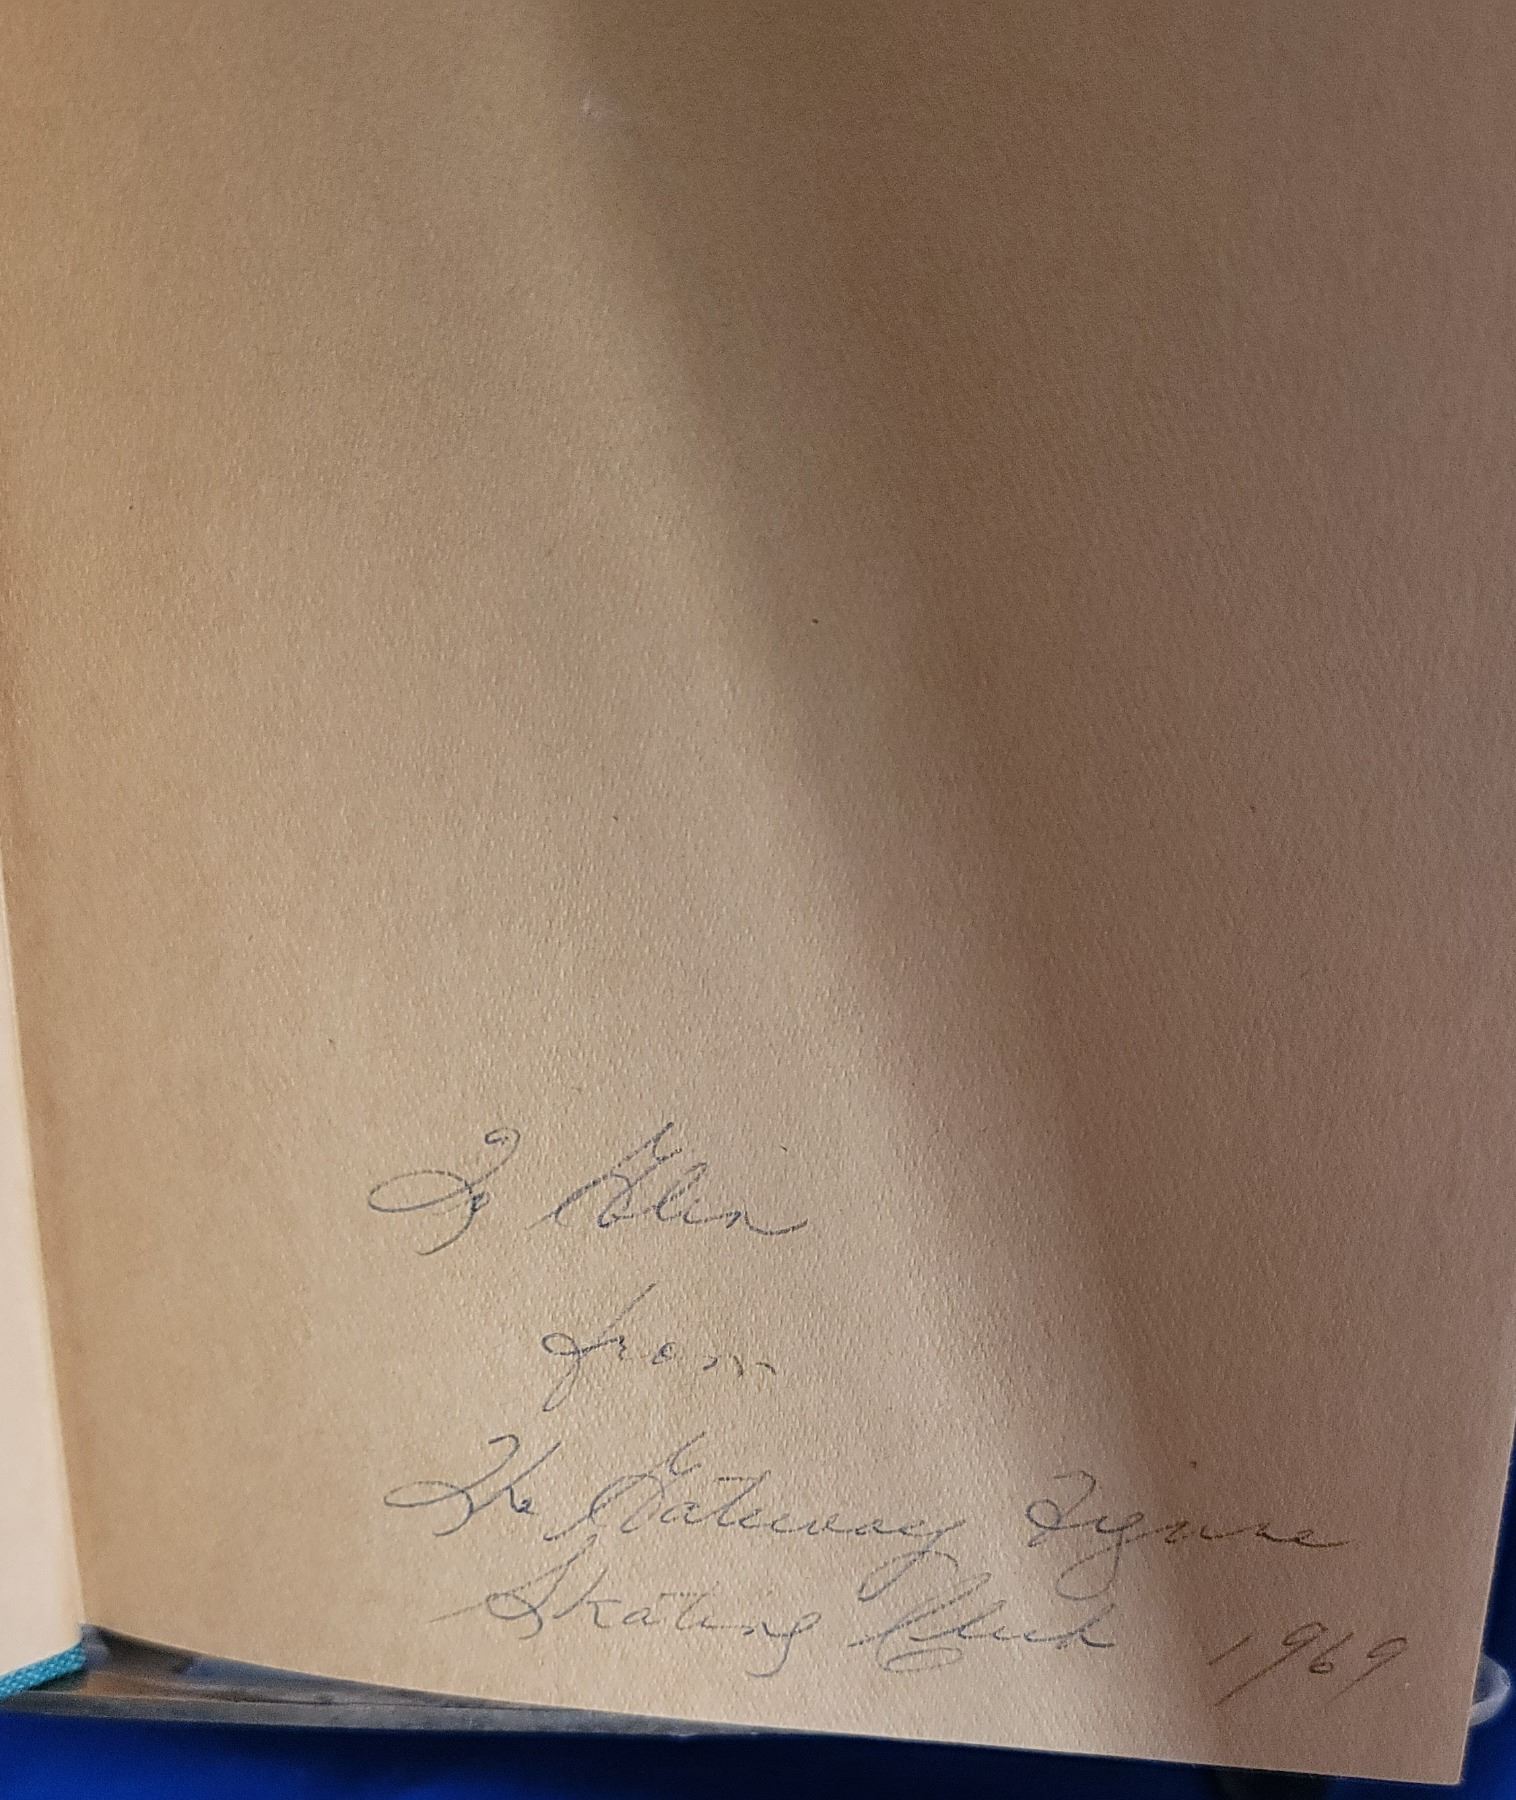 To Glen
from
The Gateway Figure
Skating Club 1969